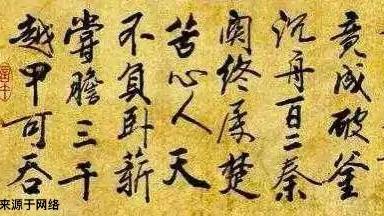 竟成破釜
沉舟百二秦
関终属楚
苦心人天
不負卧薪
嘗膽三千
越甲可吞
来源于网络